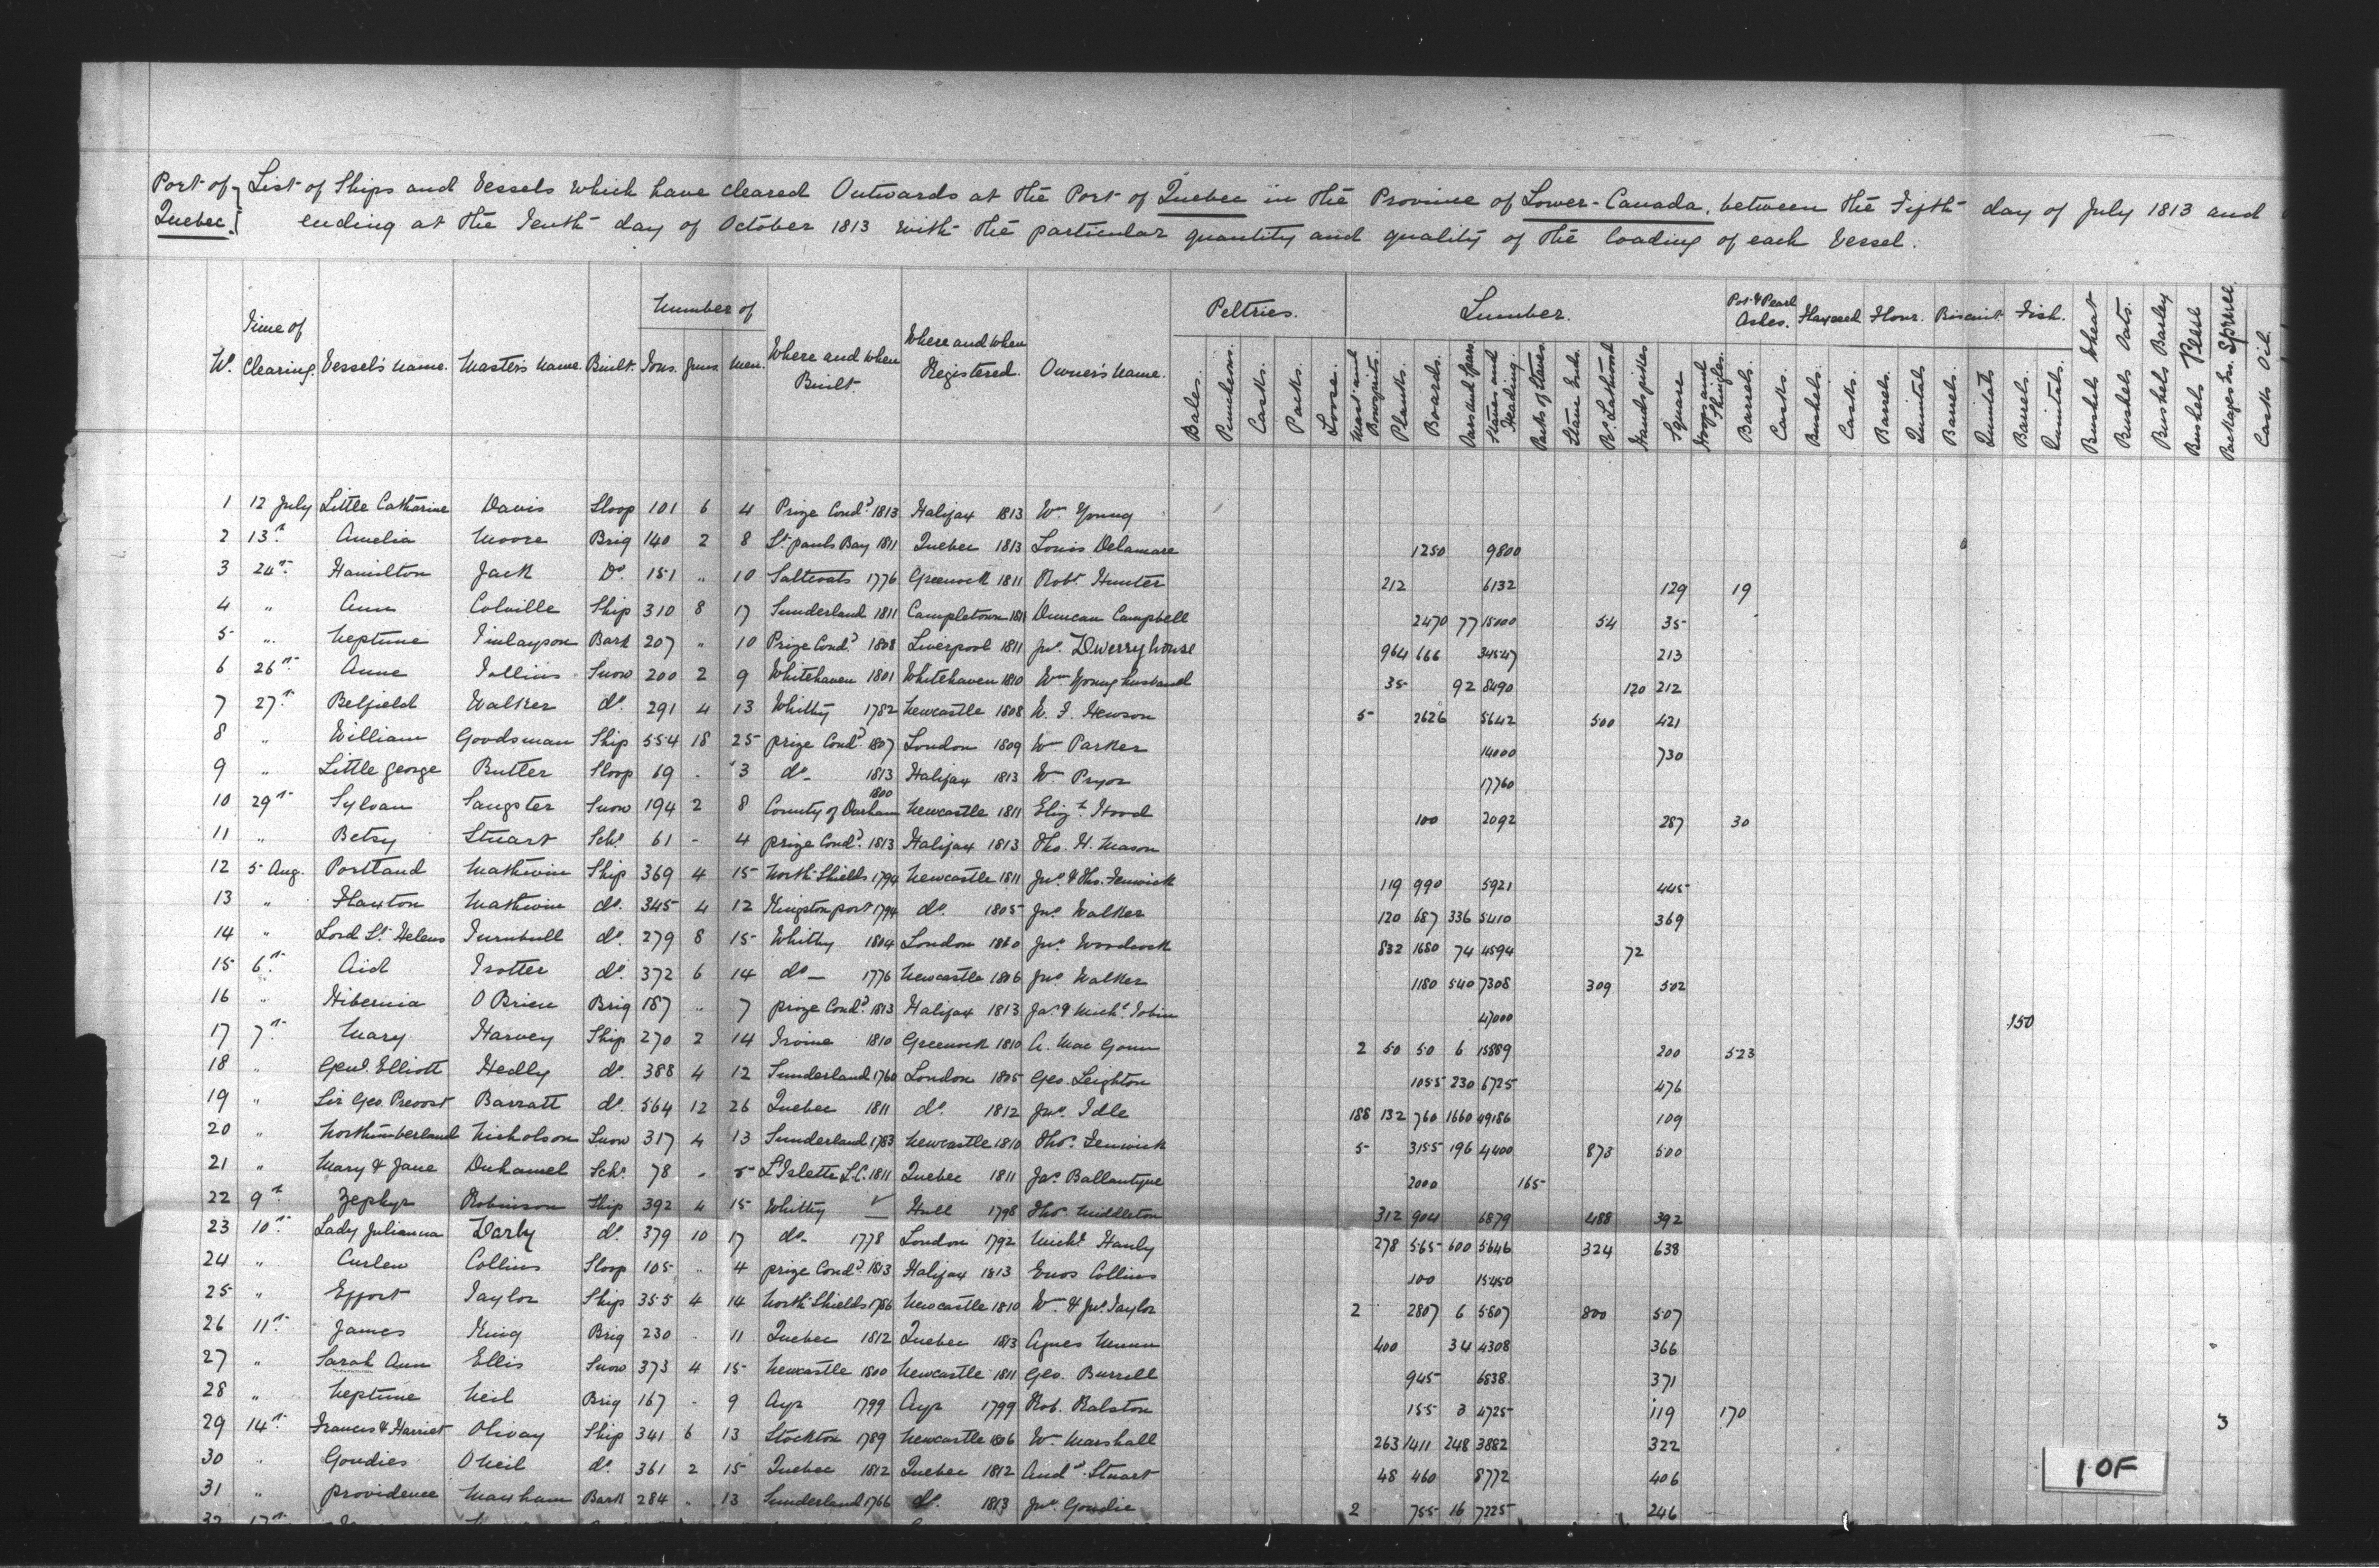 Port of } List of Ships and Vessels which have cleared Outwards at the Port of Quebec in the Province of Lower-Canada, between the Fifth day of July 1813 and
Quebec. } ending at the Tenth day of October 1813 with the particular quantity and quality of the loading of each Vessel.
Number of Peltries. Lumber. Pot & Pearl Ashes. Flaxseed Flour. Biscuit Fish.
No. Time of Clearing. Vessel's name. Master's name. Built. Tons. Guns. Men. Where and when Built. Where and when Registered. Owner's name. Bales. Puncheons. Casks. Packs. Loose. Mast and Bowsprits. Planks. Boards. Oars and Spars Staves and Heading. Packs of Staves. Stave Ends. Ps. Lathwood Handspikes Square Hoops and Shingles. Barrels. Casks. Bushels. Casks. Barrels. Quintals Barrels. Quintals Barrels. Quintals. Bushels Wheat Bushels Oats. Bushels Barley Bushels Pease Packages Ess. Spruce Casks Oil.
1 12 July Little Catharine Davis Sloop 101 6 4 Prize Cond.d 1813 Halifax 1813 Wm Young
2 13th. Amelia Moore Brig 140 2 8 St. pauls Bay 1811 Quebec 1813 Louis Delamare 1250 9800
3 24th. Hamilton Jack Do. 151 " 10 Saltcoats 1776 Greenock 1811 Robt. Hunter 212 6132 129 19
4 " Ann Colville Ship 310 8 17 Sunderland 1811 Campletown 1811 Duncan Campbell 2470 77 15000 54 35
5 " Neptune Finlayson Bark 207 " 10 Prize Cond.d 1808 Liverpool 1811 Jno. Dwerryhouse 964 666 34547 213
6 26th. Anne Snow 200 2 9 Whitehaven 1801 Whitehaven 1810 Wm Younghusband 35 92 8490 120 212
7 27th. Belfield Walker do. 291 4 13 Whitby 1782 Newcastle 1808 W. F. Hewson 5 2626 5642 500 421
8 " William Goodsman Ship 554 18 25 prize Cond.d 1807 London 1809 Wm Parker 14000 730
9 " Little george Butler Sloop 69 - 3 do- 1813 Halifax 1813 Wm Pryor 17760
10 29th. Sylvan Sangster Snow 194 2 8 County of Durham 1800 Newcastle 1811 Eliz.h Hood 100 2092 287 30
11 " Betsy Stuart Schr. 61 - 4 prize Cond.d 1813 Halifax 1813 Tho. H. Mason
12 5 Aug. Portland Mathwin Ship 369 4 15 North Shields 1794 Newcastle 1811 Jno. & Tho. Fenwick 119 990 5921 445
13 " Flaxton Mathwin do. 345 4 12 Kingston port 1794 do. 1805 Jno. Walker 120 687 336 5410 369
14 " Lord St. Helens Turnbull do. 279 8 15 Whitby 1804 London Jno. Woodcock 832 1680 74 4594 72
15 6th. Aid Trotter do. 372 6 14 do- 1776 Newcastle 1806 Jno Walker 1180 540 7308 309 502
16 " Hibernia O Brien Brig 187 " 7 prize Cond.d 1813 Halifax 1813 Jas. & Michl. Tobin 47000 150
17 7th. Mary Harvey Ship 270 2 14 Irvine 1810 Greenock 1810 A. Mac Goun 2 50 50 6 15889 200 523
18 " Genl. Elliott Hedly do. 388 4 12 Sunderland 1760 London 1805 Geo. Leighton 1055 230 6725 476
19 " Sir Geo. Prevost Barratt do. 564 12 26 Quebec 1811 do. 1812 Jno. Idle 188 132 760 1660 49186 109
20 " Northumberland Nicholson Snow 317 4 13 Sunderland 1783 Newcastle 1810 Thos. Fenwick 5 3155 196 4400 873 500
21 " Mary & Jane Duhamel Schr. 78 - 5 L'Islette L.C. 1811 Quebec 1811 Jas. Ballantyne 2000 165
22 9th. Zephyr Robinson Ship 392 4 15 Whitby — Hull 1798 Thos. Middleton 312 904 6879 488 392
23 10th. Lady Julianna Darby do. 379 10 17 do- 1778 London 1792 Michl. Hanly 278 565 600 5646 324 638
24 " Curlew Collins Sloop 105 " 4 prize Cond.d 1813 Halifax 1813 Enos Collins 100 15450
25 " Effort Taylor Ship 355 4 14 North Shields 1786 Newcastle 1810 Wm. & Jno. Taylor 2 2807 6 5807 800 507
26 11th. James King Brig 230 - 11 Quebec 1812 Quebec 1813 Agnes Munn 400 34 4308 366
27 " Sarah Ann Ellis Snow 373 4 15 Newcastle 1800 Newcastle 1811 Geo. Burrell 945 6538 371
28 " Neptune Neil Brig 167 - 9 Ayr 1799 Ayr 1799 Rob. Ralston 155 3 4725 119 170 3
29 14th. Francis & Harriet Olivay Ship 341 6 13 Stockton 1789 Newcastle 1806 Wm. Marshall 263 1411 248 3882 322
30 " Goudies O Neil do. 361 2 15 Quebec 1812 Quebec 1812 Andw. Stuart 48 460 8772 406
31 " providence Maxham Bark 284 " 13 Sunderland 1766 do. 1813 Jno. Goudie 2 755 16 7225 246
32
10F